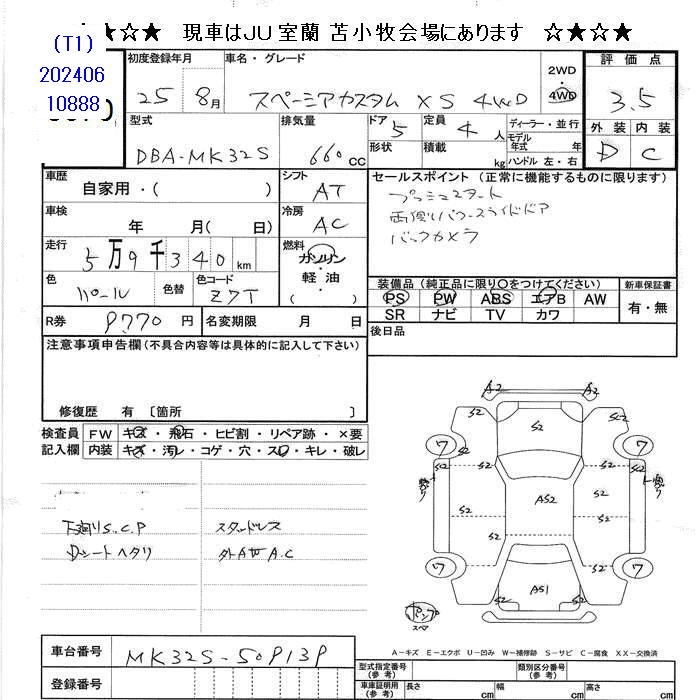 ★☆★ 現車はJU室蘭 苫小牧会場にあります ☆★☆★
(T1)
202406
10888
初度登録年月
車名・グレード
2WD
・
4WD
評価点
25 8月
スペーシアカスタム XS 4WD
3.5
型式
排気量
ドア
定員
ディーラー・並行
外装 内装
5
4人
モデル
年式 年
DBA-MK32S
660cc
形状
積載
kg
ハンドル 左・右
D
C
車歴
自家用・( )
シフト
AT
セールスポイント(正常に機能するものに限ります)
プッシュスタート
両側パワースライドドア
バックカメラ
車検
年 月( 日)
冷房
AC
走行
5万9千340km
燃料
ガソリン
・
軽油
・
( )
色
パール
色替
色コード
Z7T
装備品(純正品に限り○をつけてください)
新車保証書
PS PW ABS エアB AW
有・無
SR ナビ TV カワ
R券
円
名変期限 月 日
後日品
注意事項申告欄(不具合内容等は具体的に記入して下さい)
修復歴 有 〔箇所 〕
検査員
記入欄
FW キズ・飛石・ヒビ割・リペア跡・×要
内装 キズ・汚レ・コゲ・穴・スレ・キレ・破レ
下廻りS.C.P
スタッドレス
Dシートヘタリ
外AW A.C
A2 A2
S2
7 7
S2 S2
AS2
S2 S2
7 7
S2 S2
AS1
パンク
スペア
A-キズ E-エクボ U-凹み W-補修跡 S-サビ C-腐食 XX-交換済
車台番号
型式指定番号
(参考)
類別区分番号
(参考)
登録番号
車庫証明用
(参考)
長さ cm
幅 cm
高さ cm